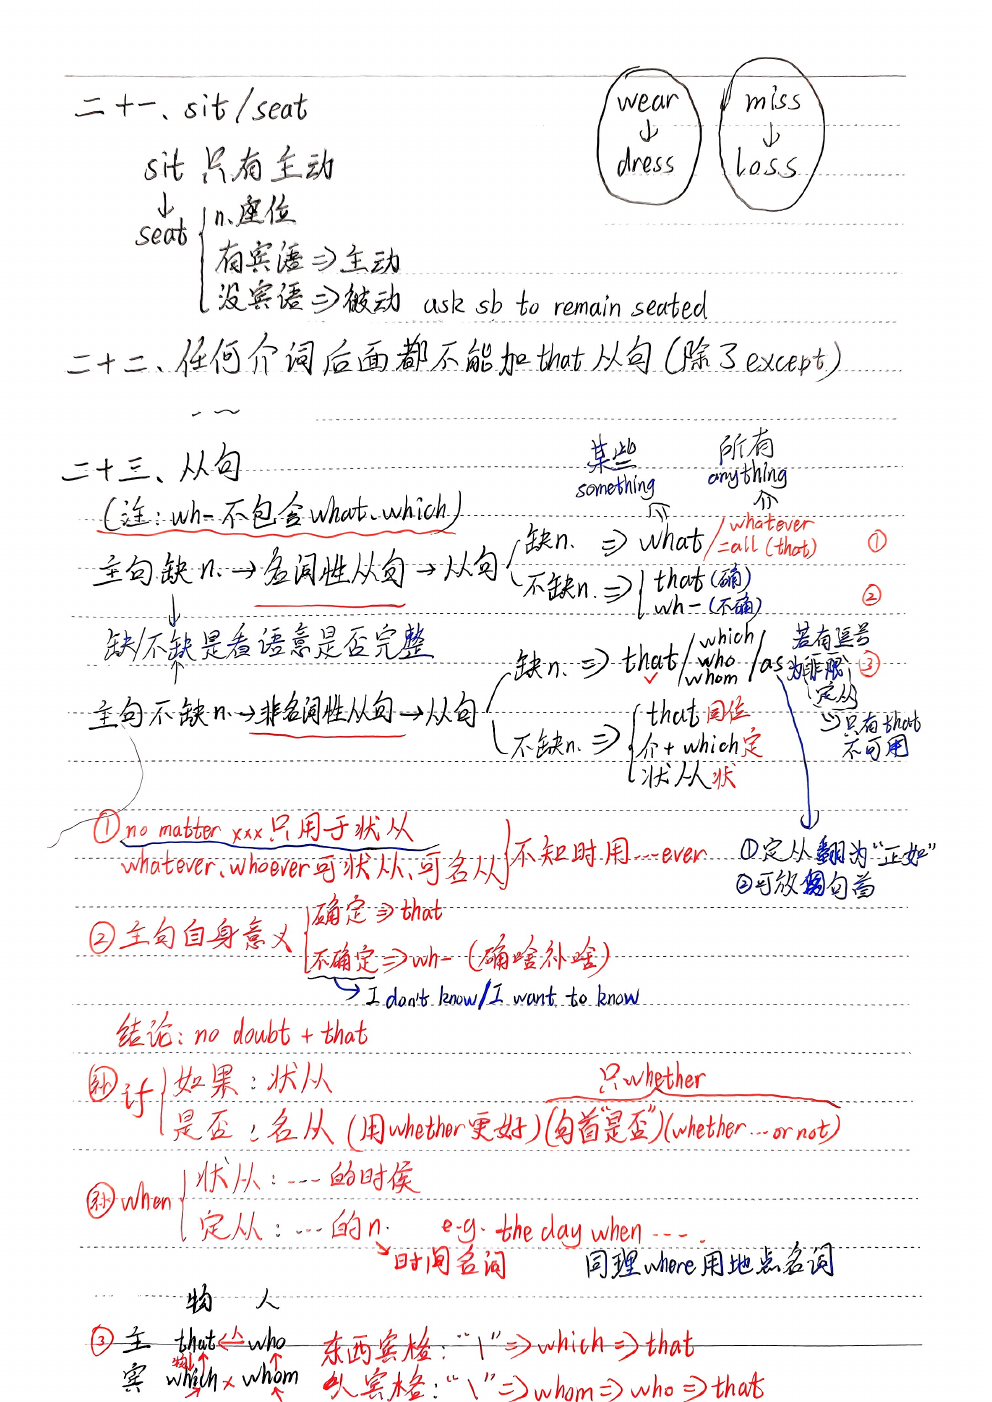 二十一、sit/seat
wear
↓
dress
miss
↓
loss
sit 只有主动
↓
seat { n.座位
有宾语⇒主动
没宾语⇒被动 ask sb to remain seated
二十二、任何介词后面都不能加that从句(除了except)
二十三、从句
某些
something
所有
anything
(注:wh-不包含what、which)
主句缺n.→名词性从句→从句
缺n. ⇒ what/whatever
=all (that) ①
不缺n. ⇒ that(确)
wh-(不确) ②
缺/不缺是看语意是否完整
主句不缺n.→非名词性从句→从句
缺n. ⇒ that/which
who
whom /as ③
若有逗号
为非限
定从
⇒只有that
不可用
不缺n. ⇒ that 同位
介+which定
状从状
①no matter xxx只用于状从
whatever、whoever可状从、可名从
不知时用…ever
①定从翻为“正如”
②可放句首
②主句自身意义 确定⇒that
不确定⇒wh-(确啥补啥)
→I don't know/I want to know
结论:no doubt + that
补 if 如果:状从
是否:名从(用whether更好)(句首“是否”)(whether…or not)
只whether
补 when 状从:…的时候
定从:…的n. e.g. the day when ….
时间名词
同理where用地点名词
物 人
③ 主 that ← who 东西宾格:“\”⇒which⇒that
宾 which × whom 人宾格:“\”⇒whom⇒who⇒that